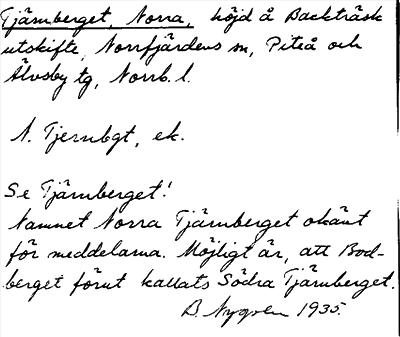 Tjärnberget, Norra, höjd å Backträsk
utskifte, Norrfjärdens sn, Piteå och
Älvsby tg, Norrb. l.
N. Tjernbgt, ek.
Se Tjärnberget!
Namnet Norra Tjärnberget okänt
för meddelarna. Möjligt är, att Bod-
berget förut kallats Södra Tjärnberget.
B Nygren 1935.